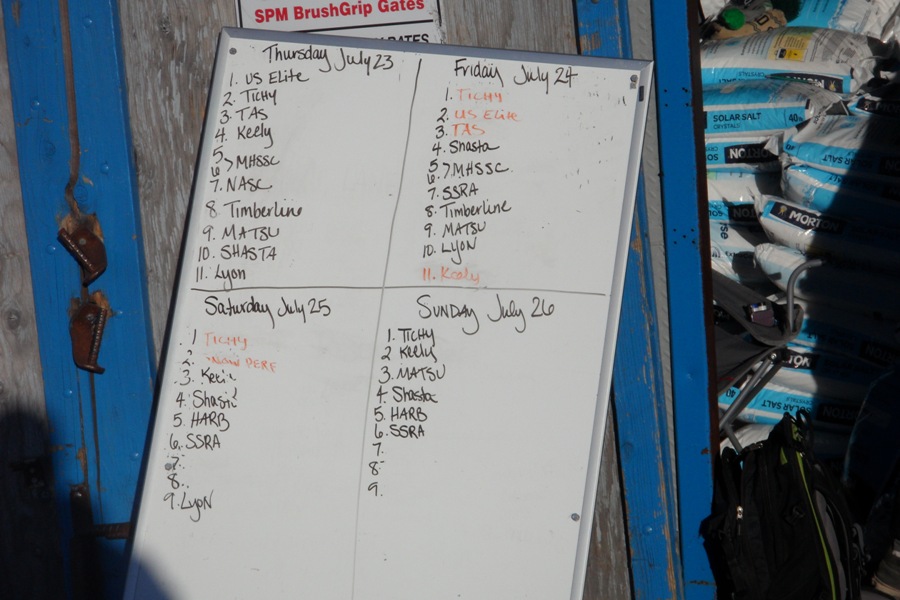 SPM BrushGrip Gates
Thursday July 23
1. US Elite
2. TICHY
3. TAS
4. Keely
5.
6 > MHSSC
7. NASC
8. Timberline
9. MATSU
10. SHASTA
11. Lyon
Friday July 24
1. TICHY
2. US Elite
3. TAS
4. Shasta
5.
6. > MHSSC.
7. SSRA
8. Timberline
9. MATSU
10. LYON
11. Keely
Saturday July 25
1 TICHY
2. PERF
3.
4.
5 HARB
6. SSRA
7.
8.
9. LYON
Sunday July 26
1. TICHY
2 Keely
3. MATSU
4. Shasta
5. HARB
6. SSRA
7.
8.
9.
MORTON
SOLAR SALT
CRYSTALS
40
MORTON
MORTON